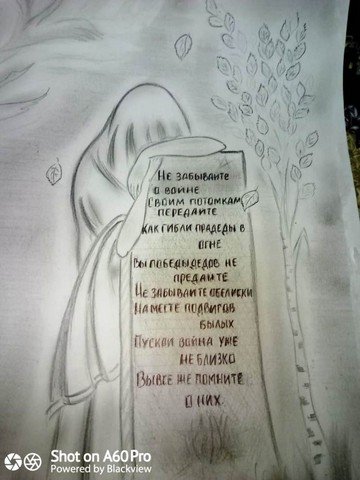 Не забывайте
о войне
Своим потомкам
передайте
Как гибли прадеды в
огне
Вы победы дедов не
предайте
Не забывайте обелиски
На месте подвигов
былых
Пускай война уже
не близко
Вы все же помните
о них.
Shot on A60Pro
Powered by Blackview